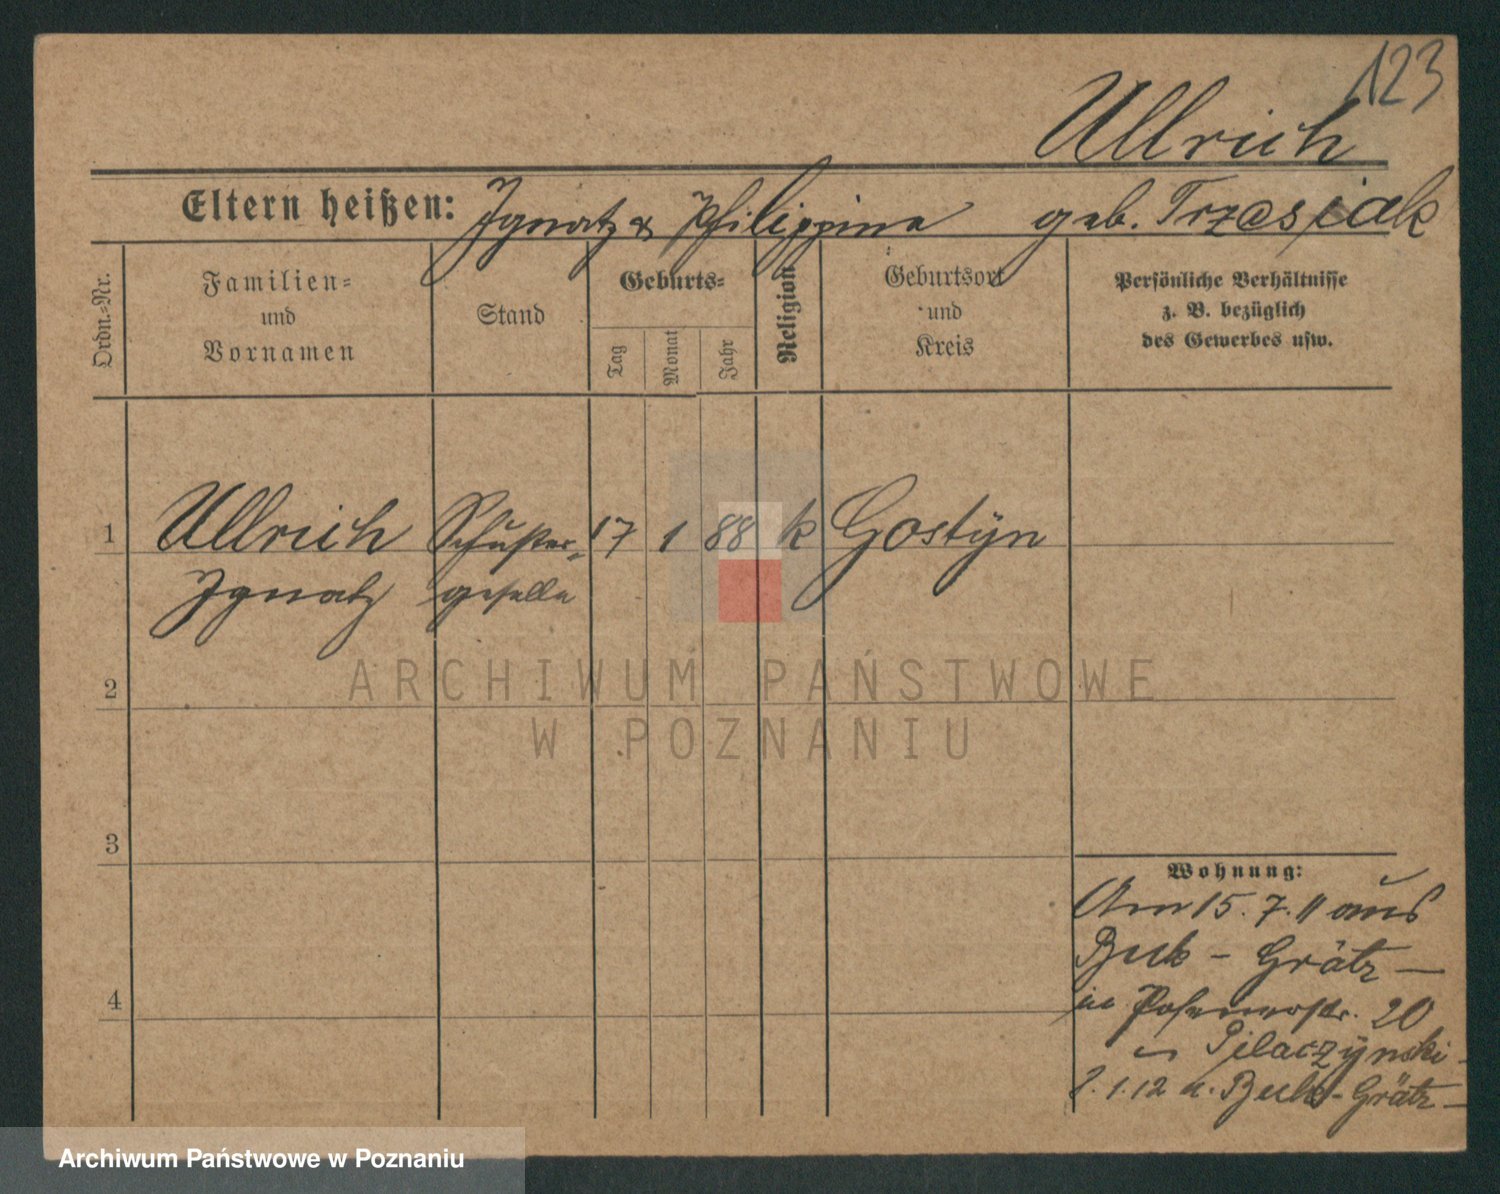 123
Ullrich
Eltern heißen: Ignatz & Philippina geb. Trzesiak
Ordn.-Nr.
Familien-
und
Vornamen
Stand
Geburts-
Tag
Monat
Jahr
Religion
Geburtsort
und
Kreis
Persönliche Verhältnisse
z. B. bezüglich
des Gewerbes usw.
1 Ullrich Schuster- 17 1 88 k Gostÿn
Ignatz geselle
2
3
4
Wohnung:
Am 15. 7. 11 aus
Buk - Grätz -
in Posenerstr. 20
Pilaczÿnski
1. 12 n. Buk - Grätz -
ARCHIWUM PAŃSTWOWE
W POZNANIU
Archiwum Państwowe w Poznaniu